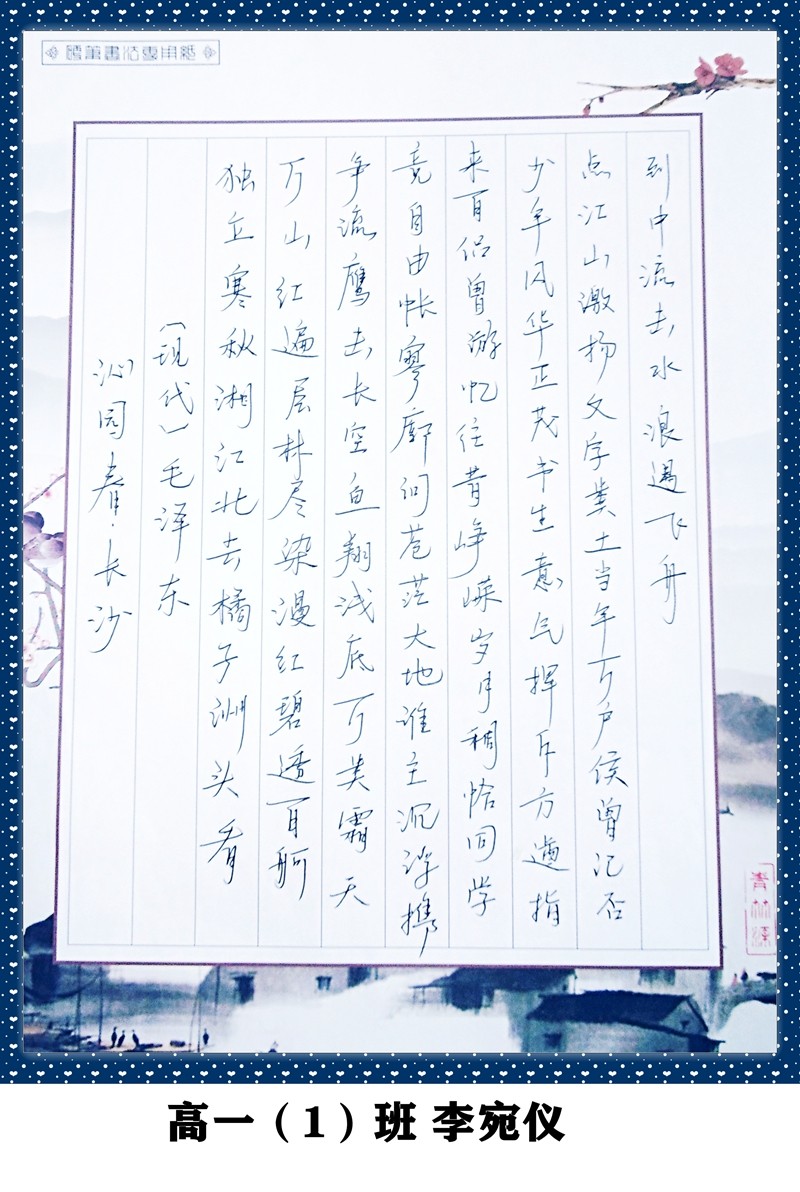 硬筆書法專用紙
沁园春·长沙
（现代）毛泽东
独立寒秋湘江北去橘子洲头看
万山红遍层林尽染漫红碧透百舸
争流鹰击长空鱼翔浅底万类霜天
竞自由怅寥廓问苍茫大地谁主沉浮携
来百侣曾游忆往昔峥嵘岁月稠恰同学
少年风华正茂书生意气挥斥方遒指
点江山激扬文字粪土当年万户侯曾记否
到中流击水浪遏飞舟
高一（1）班 李宛仪